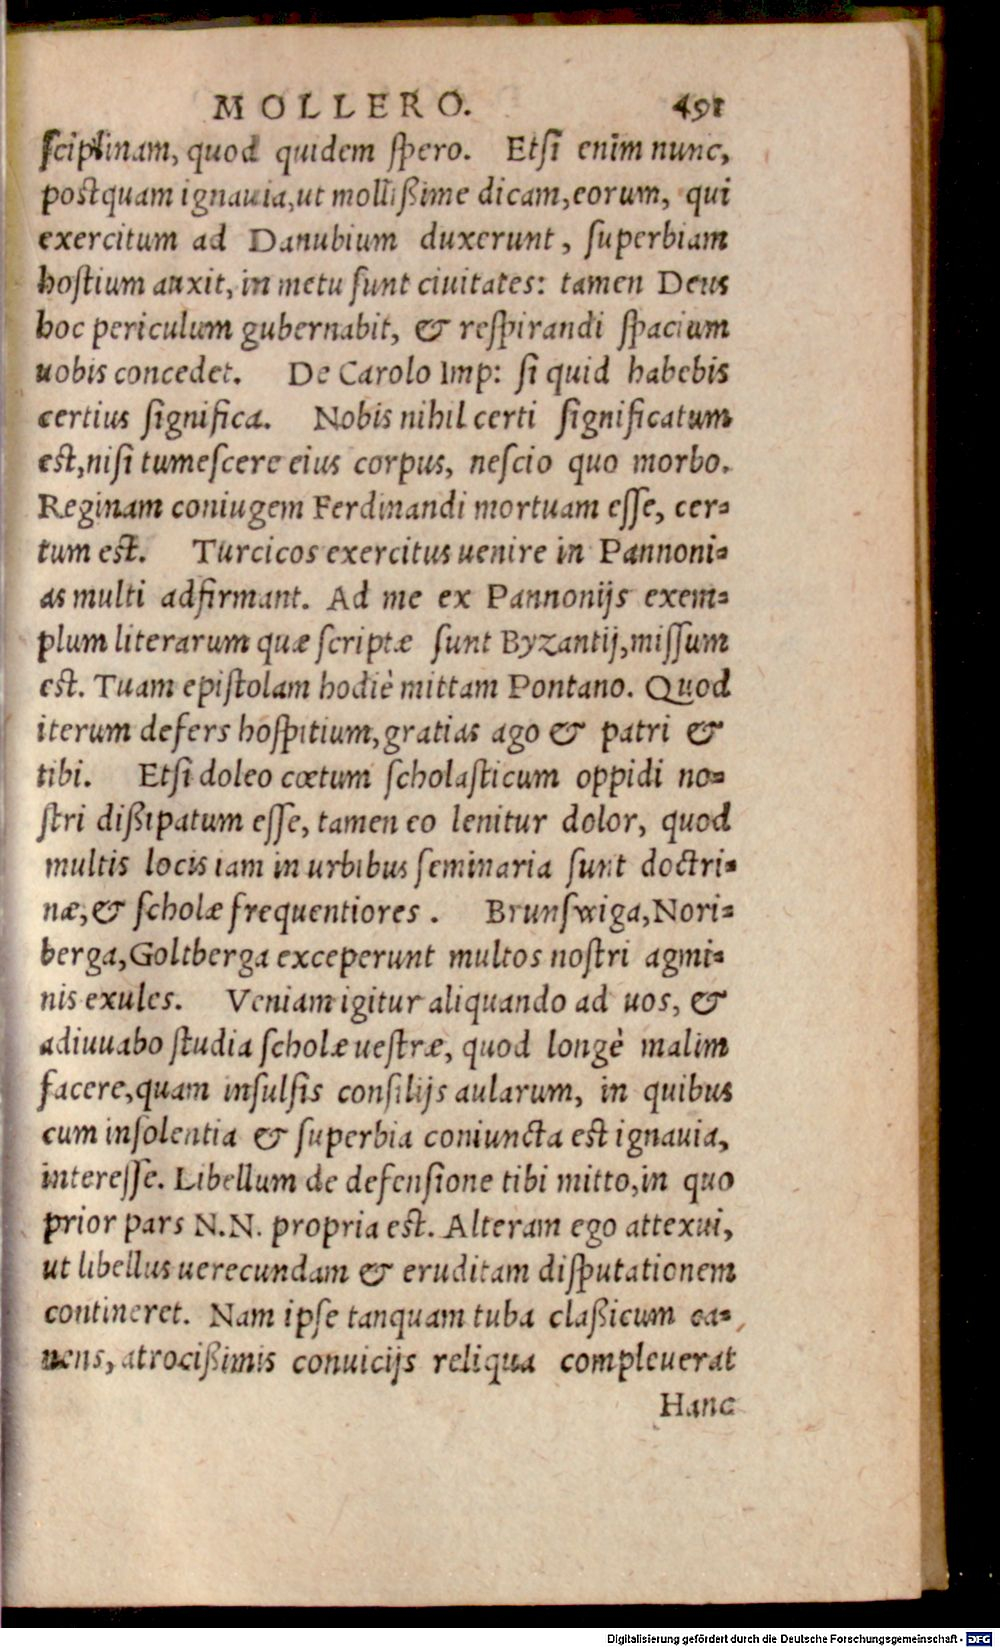 MOLLERO. 491
ſciplinam, quod quidem ſpero. Etſi enim nunc,
poſtquam ignauia, ut mollißime dicam, eorum, qui
exercitum ad Danubium duxerunt, ſuperbiam
hoſtium auxit, in metu ſunt ciuitates: tamen Deus
hoc periculum gubernabit, & reſpirandi ſpacium
uobis concedet. De Carolo Imp: ſi quid habebis
certius ſignifica. Nobis nihil certi ſignificatum
eſt, niſi tumeſcere eius corpus, neſcio quo morbo.
Reginam coniugem Ferdinandi mortuam eſſe, cer⸗
tum eſt. Turcicos exercitus uenire in Pannoni⸗
as multi adfirmant. Ad me ex Pannonijs exem⸗
plum literarum quæ ſcriptæ ſunt Byzantij, miſſum
eſt. Tuam epiſtolam hodiè mittam Pontano. Quod
iterum defers hoſpitium, gratias ago & patri &
tibi. Etſi doleo cœtum ſcholaſticum oppidi no⸗
ſtri dißipatum eſſe, tamen eo lenitur dolor, quod
multis locis iam in urbibus ſeminaria ſunt doctri⸗
næ, & ſcholæ frequentiores. Brunſwiga, Nori⸗
berga, Goltberga exceperunt multos noſtri agmi⸗
nis exules. Veniam igitur aliquando ad uos, &
adiuuabo ſtudia ſcholæ ueſtræ, quod longè malim
facere, quam inſulſis conſilijs aularum, in quibus
cum inſolentia & ſuperbia coniuncta eſt ignauia,
intereſſe. Libellum de defenſione tibi mitto, in quo
prior pars N.N. propria eſt. Alteram ego attexui,
ut libellus uerecundam & eruditam diſputationem
contineret. Nam ipſe tanquam tuba claßicum ca⸗
nens, atrocißimis conuicijs reliqua compleuerat
Hanc
Digitalisierung gefördert durch die Deutsche Forschungsgemeinschaft - DFG